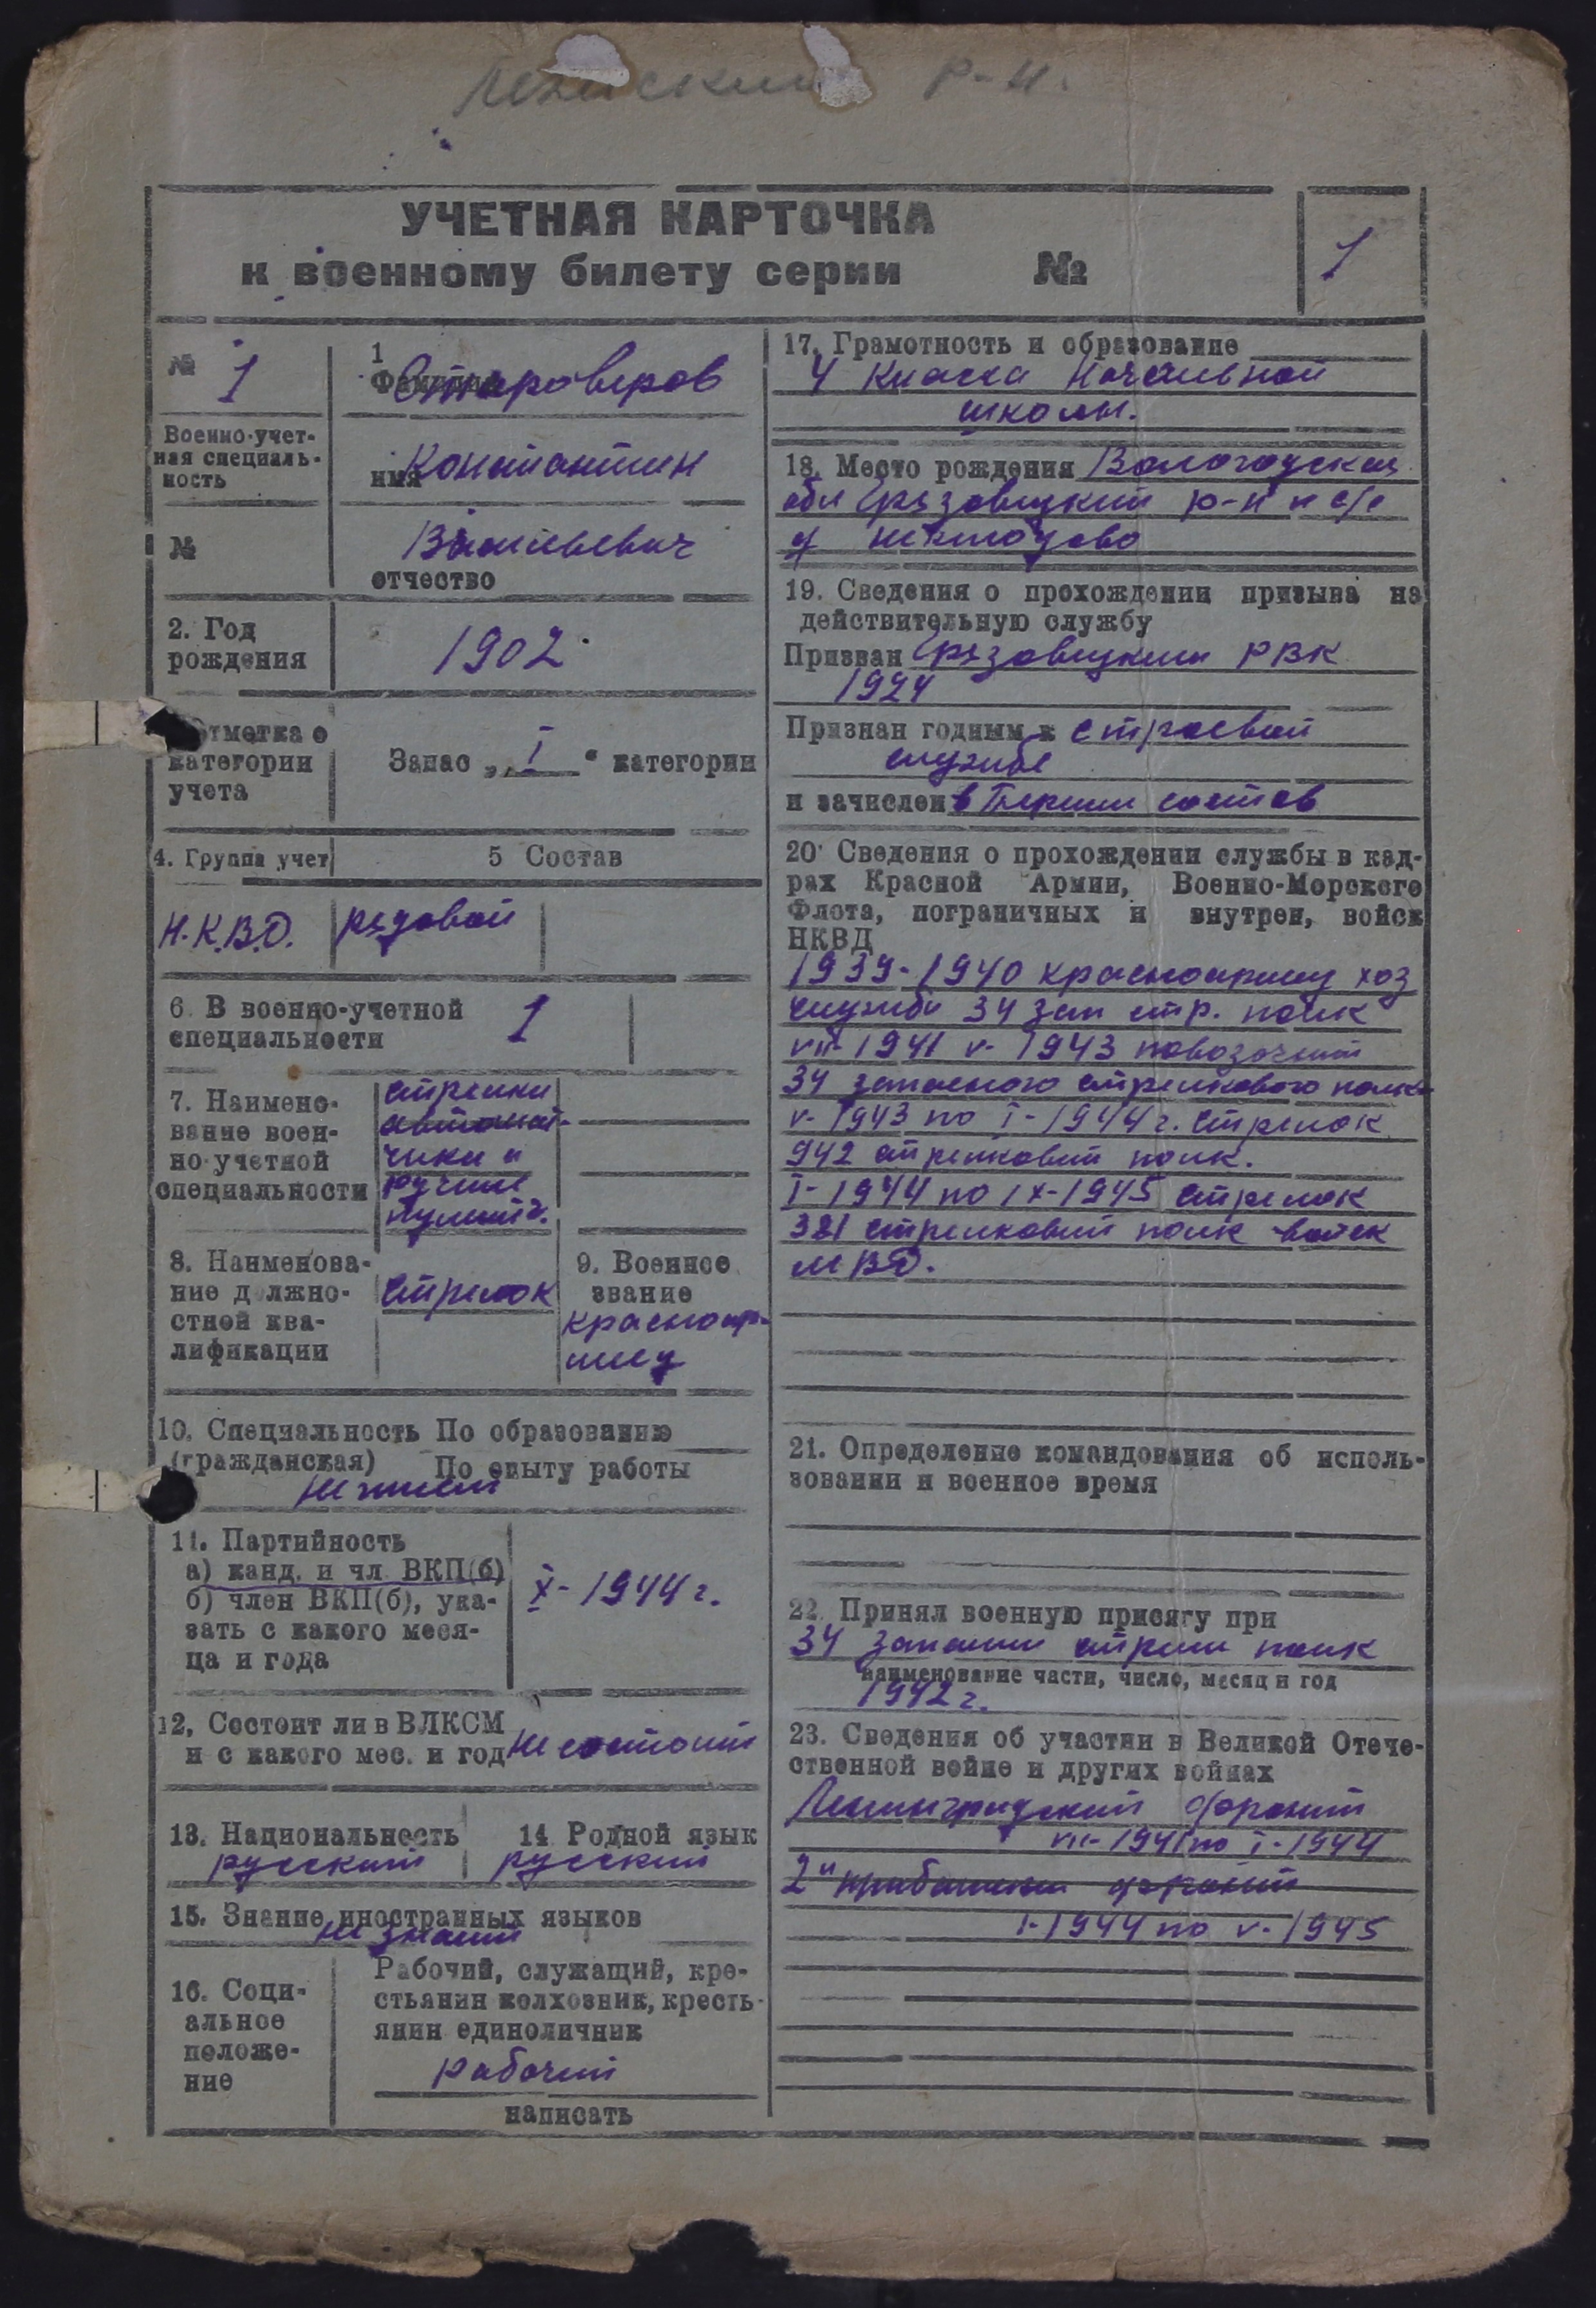 р-н.
УЧЕТНАЯ КАРТОЧКА
к военному билету серии №
1
№ 1
1
Фамилия Староверов
Военно-учет-
ная специаль-
ность
имя Константин
№
Васильевич
отчество
2. Год
рождения
1902
Отметка о
категории
учета
Запас „ I “ категории
4. Группа учет
5 Состав
Н.К.В.Д.
рядовой
6. В военно-учетной
специальности
1
7. Наимено-
вание воен-
но-учетной
специальности
стрелки
автомат-
чики и
ручные
пулемётч.
8. Наименова-
ние должно-
стной ква-
лификации
стрелок
9. Военное
звание
красноар-
меец
10. Специальность По образованию
(гражданская) По опыту работы
не имеет
11. Партийность
а) канд. и чл ВКП(б)
б) член ВКП(б), ука-
зать с какого меся-
ца и года
X-1944 г.
12, Состоит ли в ВЛКСМ
и с какого мес. и год не состоит
13. Национальность
русский
14 Родной язык
русский
15. Знание иностранных языков
не знает
16. Соци-
альное
положе-
ние
Рабочий, служащий, кре-
стьянин колхозник, кресть-
янин единоличник
рабочий
написать
17. Грамотность и образование
4 класса начальной
школы.
18. Место рождения Вологодская
обл Грязовецкий р-н с/с
д
19. Сведения о прохождении призыва на
действительную службу
Призван Грязовецким РВК
1924
Признан годным к строевой
службе
и зачислен в состав
20. Сведения о прохождении службы в кад-
рах Красной Армии, Военно-Морского
Флота, пограничных и внутрен, войск
НКВД
1939-1940 красноармеец хоз
службы 34 зап стр. полк
VII-1941 V-1943 повозочный
34 запасного стрелкового полка
V-1943 по I-1944 г. стрелок
942 стрелковый полк.
I-1944 по IX-1945 стрелок
381 стрелковый полк войск
МВД.
21. Определение командования об исполь-
зовании в военное время
22. Принял военную присягу при
34 стрелк полк
наименование части, число, месяц и год
1942 г.
23. Сведения об участии в Великой Отече-
ственной войне и других войнах
Ленинградский фронт
VII-1941 по I-1944
2й прибалтий фронт
I-1944 по V-1945